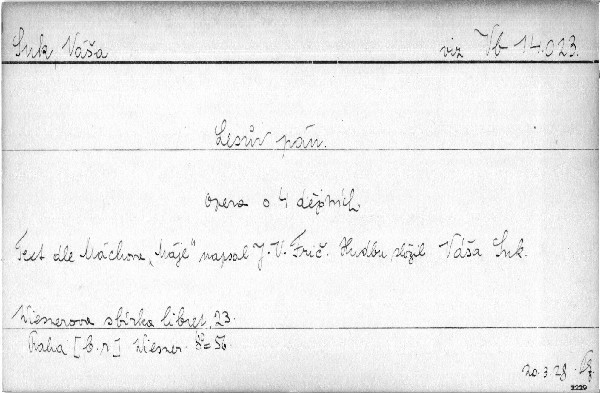 Suk, Váša
viz Vb 14.023.
Lesův pán.
Opera o 4 dějstvích
Text dle Máchova „Máje" napsal J. V. Frič. Hudbu složil Váša Suk.
Wiesnerova sbírka libret, 23.
Praha [b. r.] Wiesner. 8° = 56
20.3.28.
2229